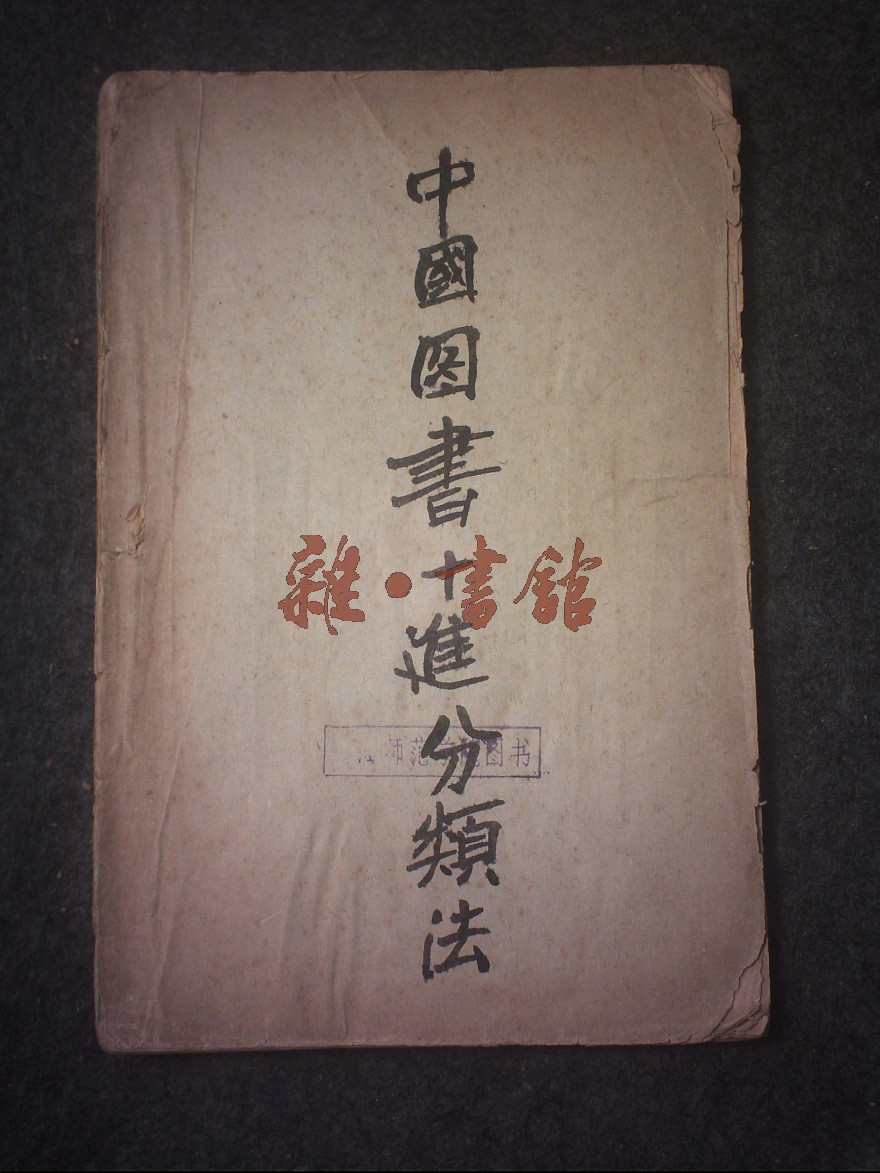 中國図書十進分類法
雜·書館
师范学院图书